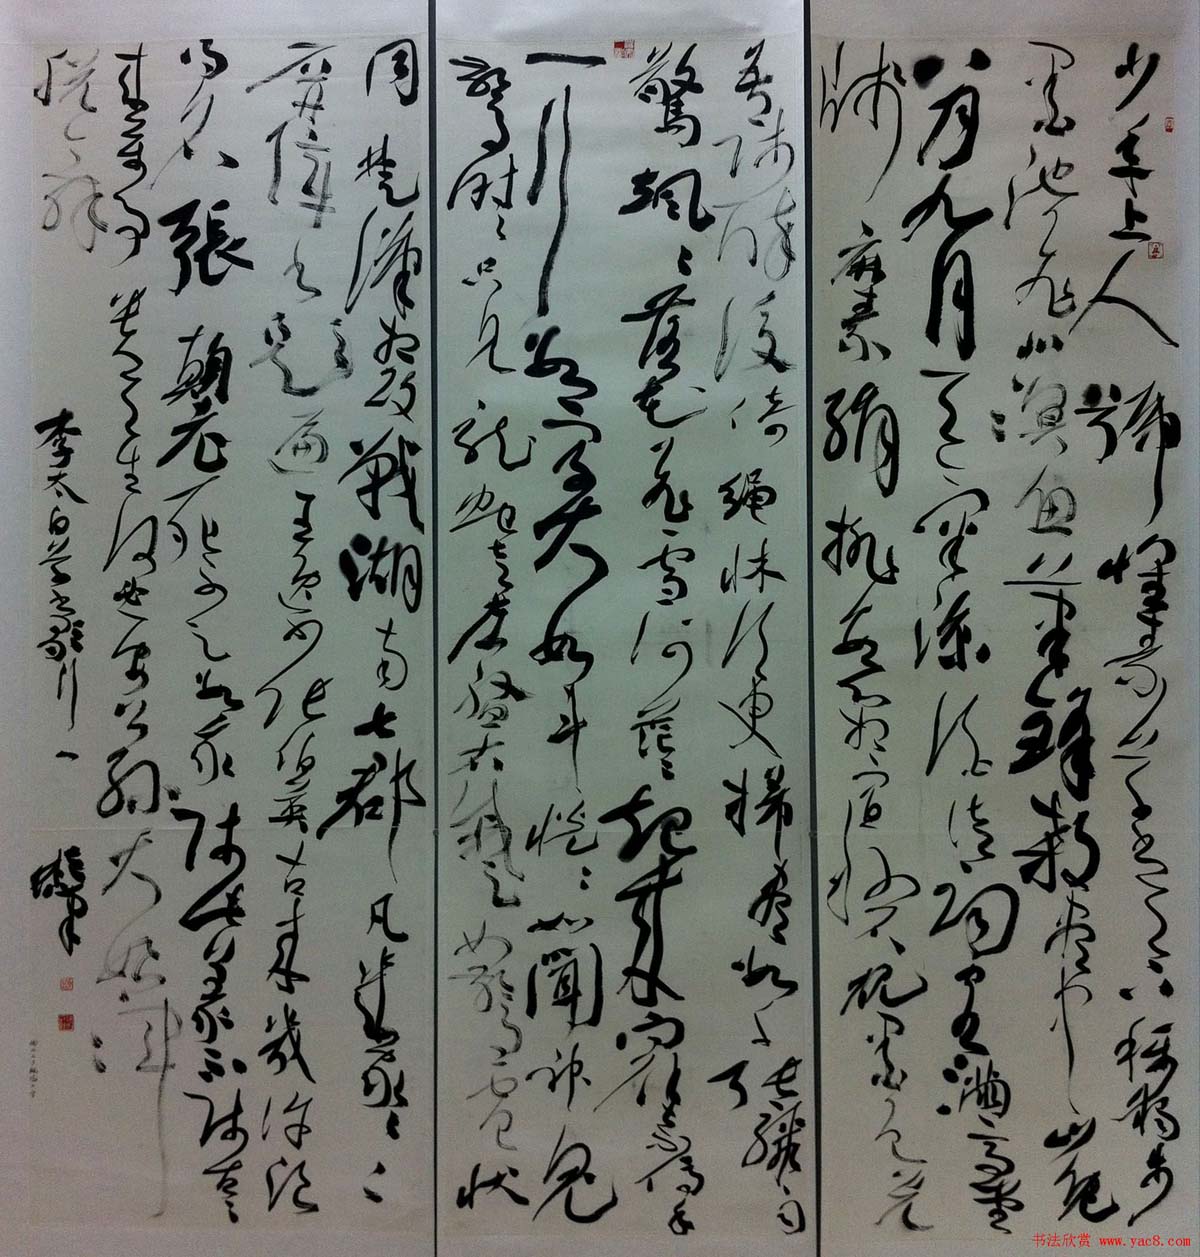 少年上人號懷素草書天下稱獨步
墨池飛出北溟魚筆鋒殺盡中山兔
八月九月天氣涼酒徒詞客滿高堂
牋麻素絹排數廂宣州石硯墨色光
吾師醉後倚繩床須臾掃盡數千張驟雨
驚颯颯落花飛雪何茫茫起來向壁不停手
一行數字大如斗怳怳如聞神鬼
驚時時只見龍蛇走左盤右蹙如驚電狀
同楚漢相攻戰湖南七郡凡幾家家
屏障書題遍王逸少張伯英古來幾許浪
得名張顛老死不足數我師此義不師古古
來萬事貴天生何必要公孫大娘渾
脫舞
李太白草書歌行一
书法欣赏 www.yac8.com